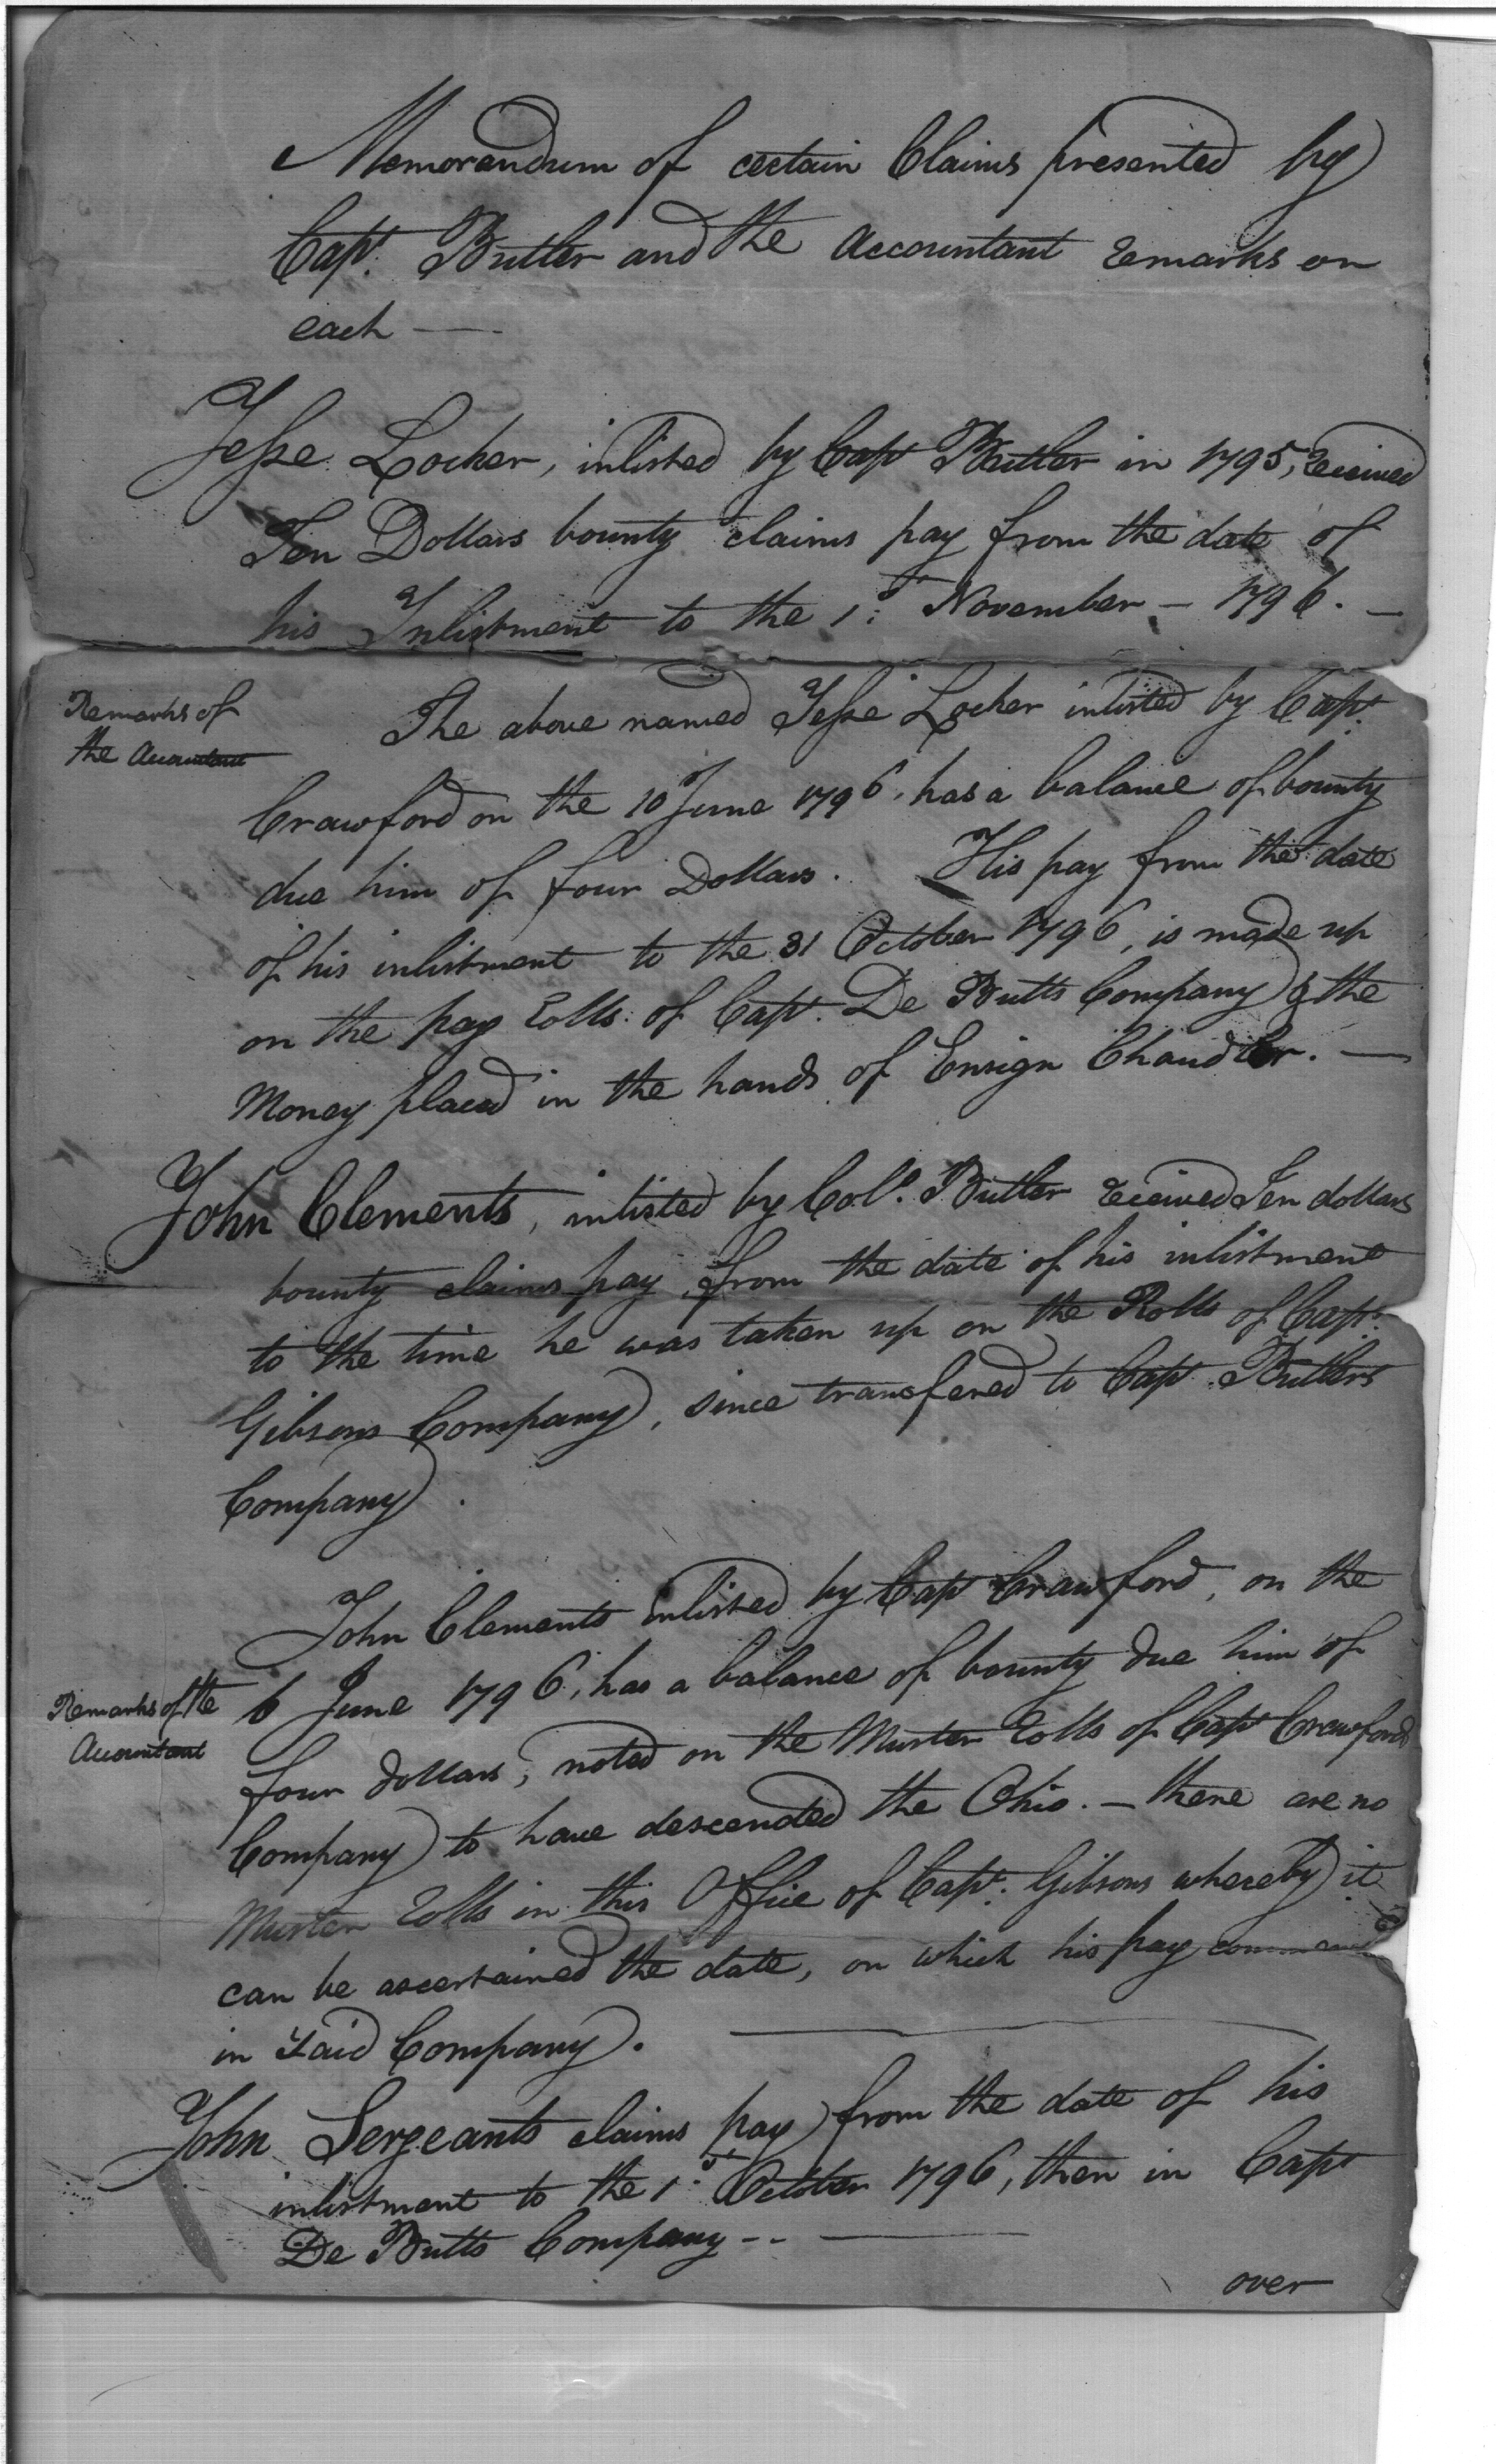 Memorandum of certain Claims presented by
Capt. Butler and the Accountant remarks on
each —
Jesse Locker, inlisted by Capt Butler in 1795, received
Ten Dollars bounty claims pay from the date of
his Inlistment to the 1st November – 1796. –
Remarks of
the Accountant
The above named Jesse Locker inlisted by Capt.
Crawford on the 10 June 1796, has a balance of bounty
due him of four Dollars. His pay from the date
of his inlistment to the 31 October 1796, is made up
on the pay rolls of Capt. De Butts Company & the
Money placed in the hands of Ensign Chandler. —
John Clements, inlisted by Col. Butler received Ten dollars
bounty claims pay from the date of his inlistment
to the time he was taken up on the Rolls of Capt.
Gibsons Company, since transfered to Capt Butlers
Company.
John Clements inlisted by Capt Crawford, on the
Remarks of the
Accountant
6 June 1796, has a balance of bounty due him of
four dollars, noted on the Muster rolls of Capt Crawfords
Company to have descended the Ohio. – there are no
Muster rolls in this Office of Capt. Gibsons whereby it
can be ascertained the date, on which his pay
in said Company. —
John Sergeants claims pay from the date of his
inlistment to the 1st October 1796, then in Capt
De Butts Company -- —
over